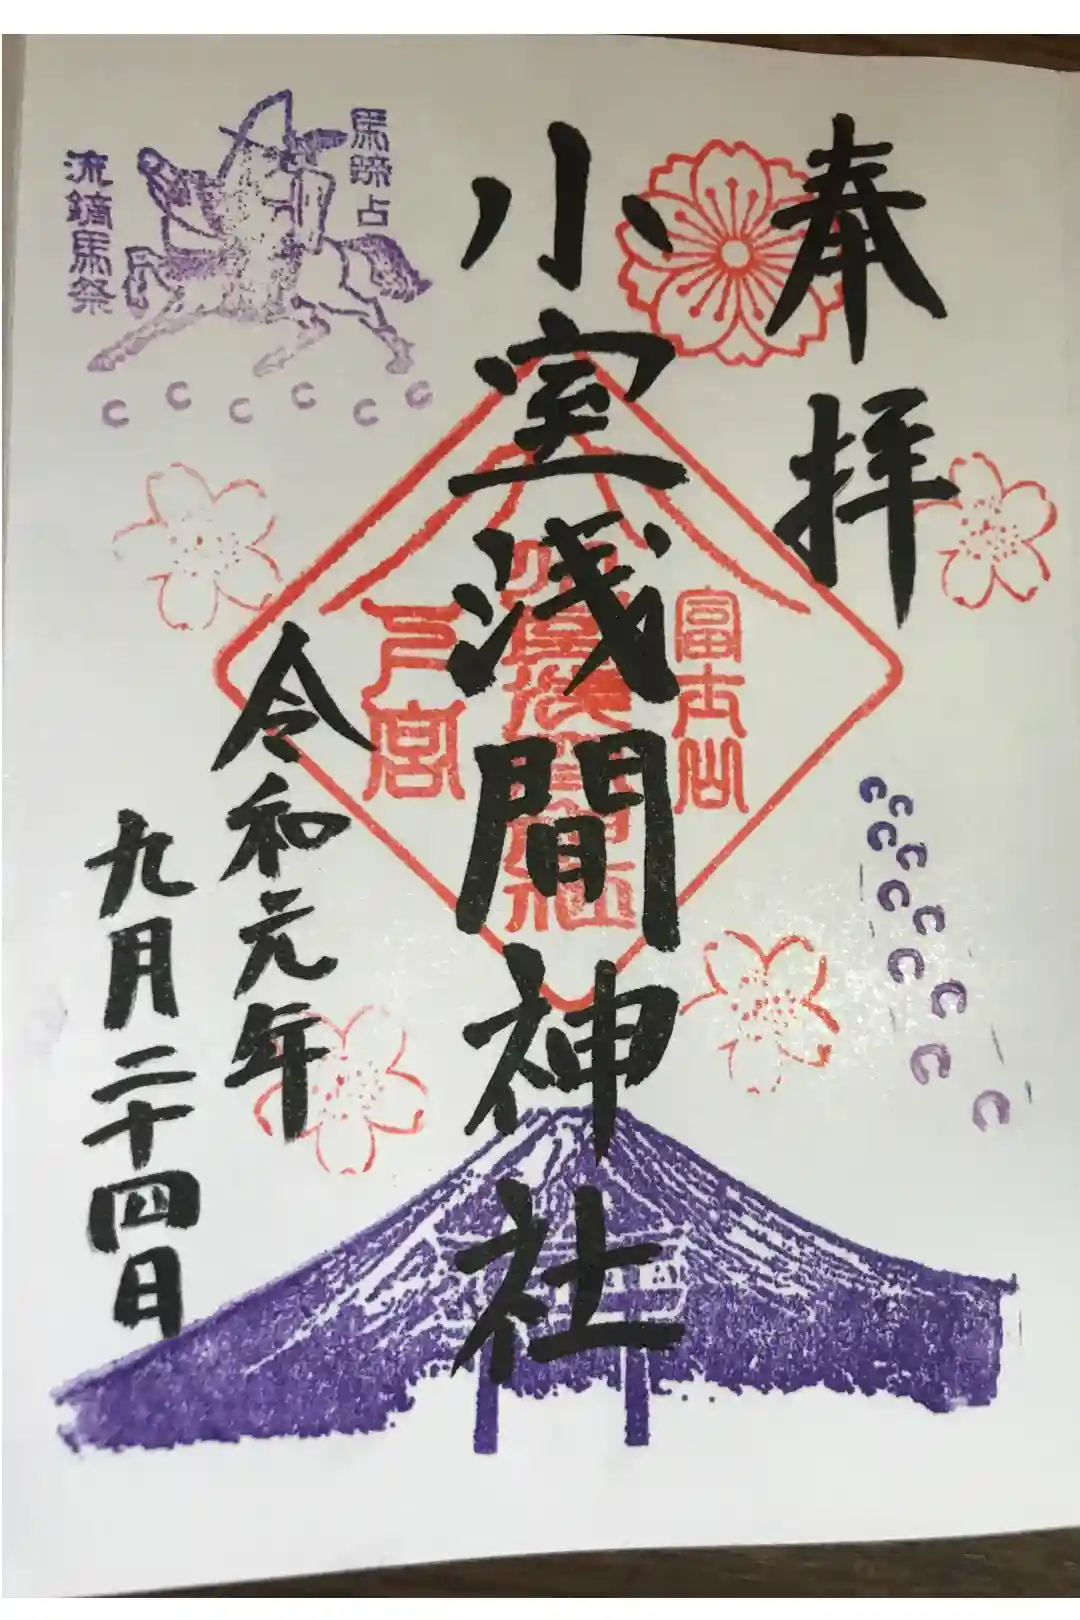 奉拝
富士山
小室浅間神社
下宮
令和元年
九月二十四日
馬蹄占
流鏑馬祭